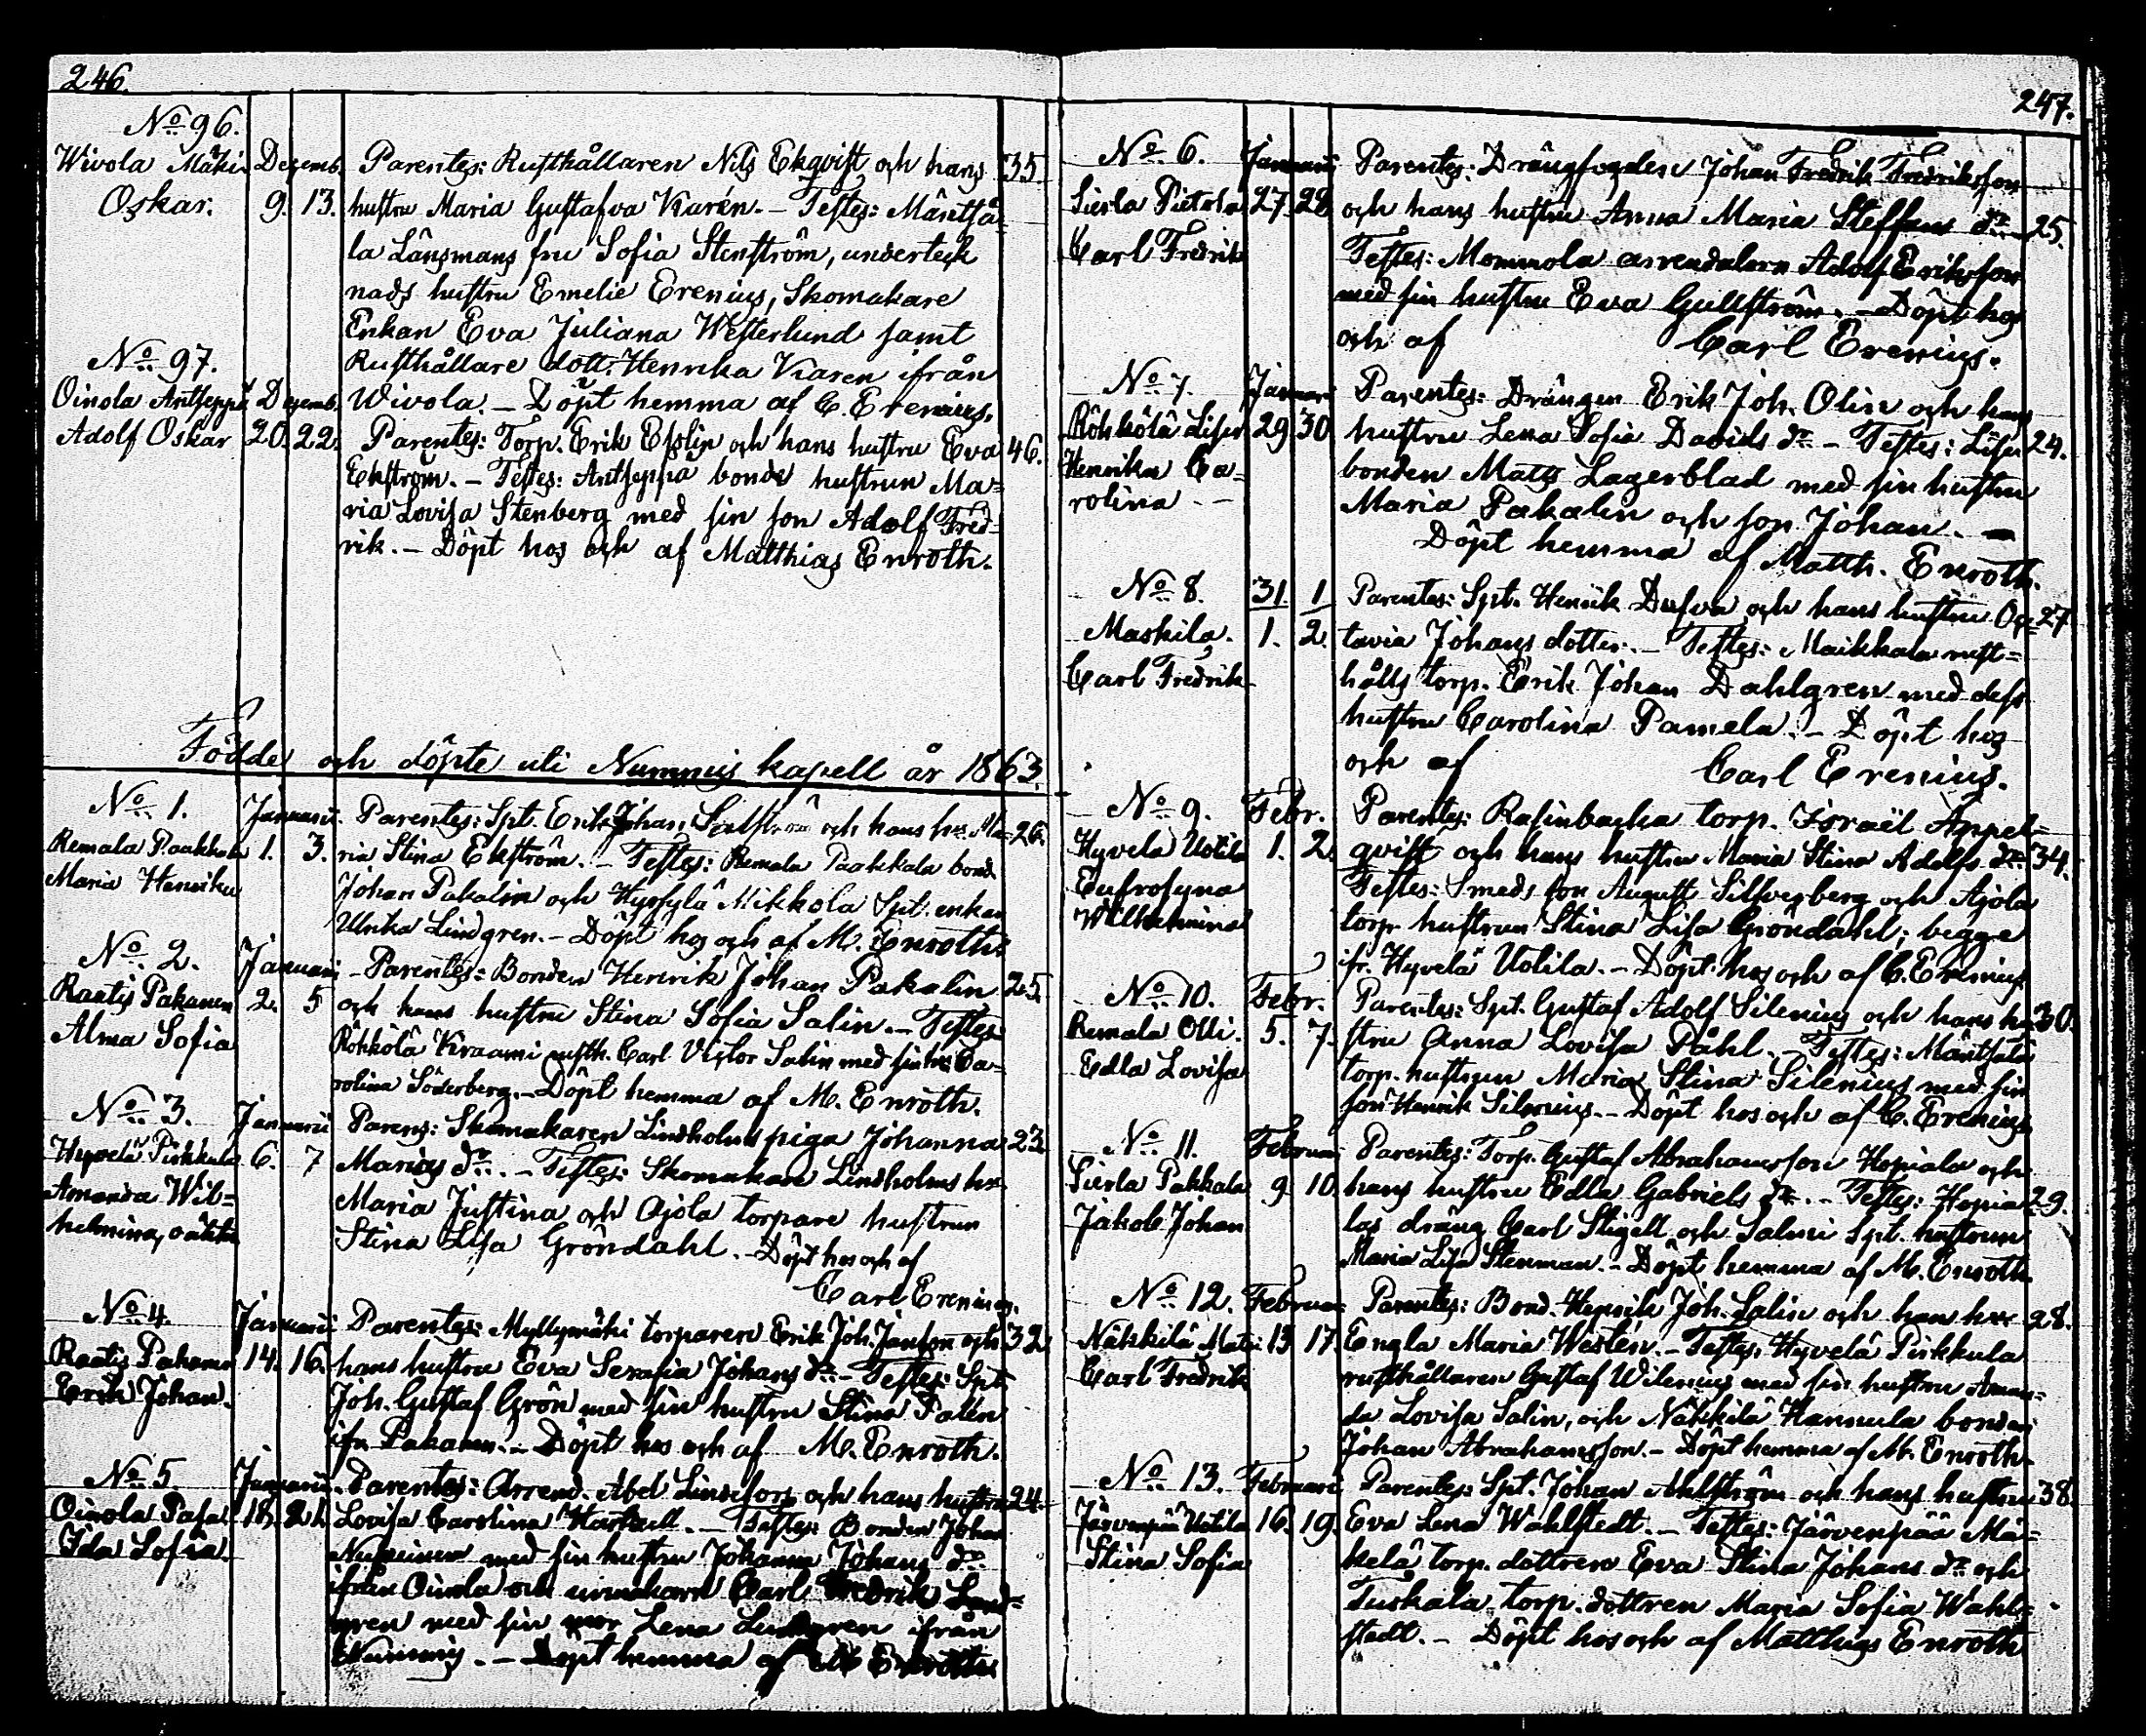 246.
No 96.
Wivola Mäki Dezemb. Parentes: Rusthållaren Nils Ekqvist och hans 35
Oskar. 9. 13. hustru Maria Gustafva Karén. – Testes: Mäntsä=
la Länsmans fru Sofia Stenström, underteck
nads hustru Emelie Erenius, Skomakare
Enkan Eva Juliana Westerlund samt
Rusthållare dott. Henrika Karen ifrån
Wivola. – Döpt hemma af C. Erenius.
No 97.
Oinola Antseppä Dezemb.
Adolf Oskar 20. 22. Parentes: Torp. Erik Eklin och hans hustru Eva 46.
Ekström. – Testes: Antseppä bonde hustrun Ma=
ria Lovisa Stenberg med sin son Adolf Fred=
rik. – Döpt hos och af Matthias Enroth.
Födde och döpte uti Nummis kapell år 1863.
No 1. Januarii. Parentes: Spt. Erik Johan Salström och hans hu. Ma= 26.
Remala Paakkala 1. 3. ria Stina Ekström. – Testes: Remala Paakkala bond.
Maria Henrika Johan Pakalin och Hyrsylä Mikkola Spt. enkan
Ulrika Lindgren. – Döpt hos och af M. Enroth.
No 2. Januarii Parentes: Bonden Henrik Johan Pakalin 25.
Raatis Pakanen 2. 5 och hans hustru Stina Sofia Salin. – Testes:
Alma Sofia Röhkölä Kraami rusth. Carl Victor Salin med sin hu. Ca=
rolina Söderberg. – Döpt hemma af M. Enroth.
No 3. Januarii Parens: Skomakaren Lindholms piga Johanna 23.
Hyvelä Pirkkula 6. 7 Marias dr. – Testes: Skomakare Lindholms hu.
Amanda Wil= Maria Justina och Ojola torpare hustrun
helmina, oäkta Stina Lisa Gröndahl. – Döpt hos och af
Carl Erenius.
No 4. Januarii Parentes: Myllymäki torparen Erik Joh. Janson och 32.
Raatis Pakanen 14. 16. hans hustru Eva Serafia Johans dr. – Testes: Spt.
Erik Johan. Joh. Gustaf Grön med sin hustru Stina Palén
ifr. Pakanen. – Döpt hos och af M. Enroth.
No 5 Januarii. Parentes: Arrend. Abel Lindfors och hans hustru 24.
Oinola Pasal 18. 21. Lovisa Carolina. – Testes: Bonden Johan
Ida Sofia. med sin hustru Johanna Johans dr.
ifrån Oinola och Carl Fredrik Lind=
gren med sin mor Lena Lindgren ifrån
Nummis. – Döpt hemma af M. Enroth.
247.
No 6. Januarii Parentes: Drängfogden Johan Fredrik Fredriksson
Sierla Pietola 27. 28. och hans hustru Anna Maria Steffans dr. – 25.
Carl Fredrik Testes: Mommola arrendatorn Adolf Eriksson
med sin hustru Eva Gullström. – Döpt hos
och af Carl Erenius.
No 7. Januari Parentes: Drängen Erik Joh. Olin och hans
Röhkölä Liser 29. 30. hustru Lena Sofia Davids dr. – Testes: Liser 24.
Henrika Ca= bonden Matts Lagerblad med sin hustru
rolina Maria Pakalin och son Johan. –
Döpt hemma af Matth. Enroth.
No 8. 31. 1 Parentes: Spt. Henrik Dufva och hans hustru Oc= 27.
Maskila. 1. 2. tavia Johans dotter. – Testes: Maikkala rust=
Carl Fredrik hålls torp. Erik Johan Dahlgren med dess
hustru Carolina Pamela. – Döpt hos
och af Carl Erenius.
No 9. Febr. Parentes: torp. Israël Appel=
Hyvelä Uotila 1. 2. qvist och hans hustru Maria Stina Adolfs dr. 34.
Eufrosyna Testes: Smeds son August Silfverberg och Ajola
Wilhelmina torp. hustrun Stina Lisa Gröndahl; begge
ifr. Hyvelä Uotila. – Döpt hos och af C. Erenius.
No 10. Febr. Parentes: Spt. Gustaf Adolf Silenius och hans hu= 30.
Remala Olli. 5. 7. stru Anna Lovisa Påhl. – Testes: Mäntsälä
Edla Lovisa torp. hustrun Maria Stina Silenius med sin
son Henrik Silenius. – Döpt hos och af C. Erenius.
No 11. Februari Parentes: Torp. Gustaf Abrahamsson Hopiala och
Sierla Pakkala 9. 10. hans hustru Edla Gabriels dr. – Testes: Hopia= 29.
Jakob Johan las dräng Carl Stigell och Salmi Spt. hustrun
Maria Lisa Stenman. – Döpt hemma af M. Enroth.
No 12. Februari Parentes: Bond. Henrik Joh. Salin och hans hu. 28.
Näkkilä Matri 13 17. Engla Maria Westen. – Testes: Hyvelä Pirkkula
Carl Fredrik rusthållaren Gustaf Wilenius med sin hustru Aman=
da Lovisa Salin, och Näkkilä Hannula bonden
Johan Abrahamsson. – Döpt hemma af M. Enroth.
No 13. Februari Parentes: Spt. Johan Ahlström och hans hustru 38.
Järvenpää Uotila 16. 19. Eva Lena Wahlstedt. – Testes: Järvenpää Mä=
Stina Sofia kelä torp. dottren Eva Stina Johans dr. och
Tuskala torp. dottren Maria Sofia Wahl=
stedt. – Döpt hos och af Matthias Enroth